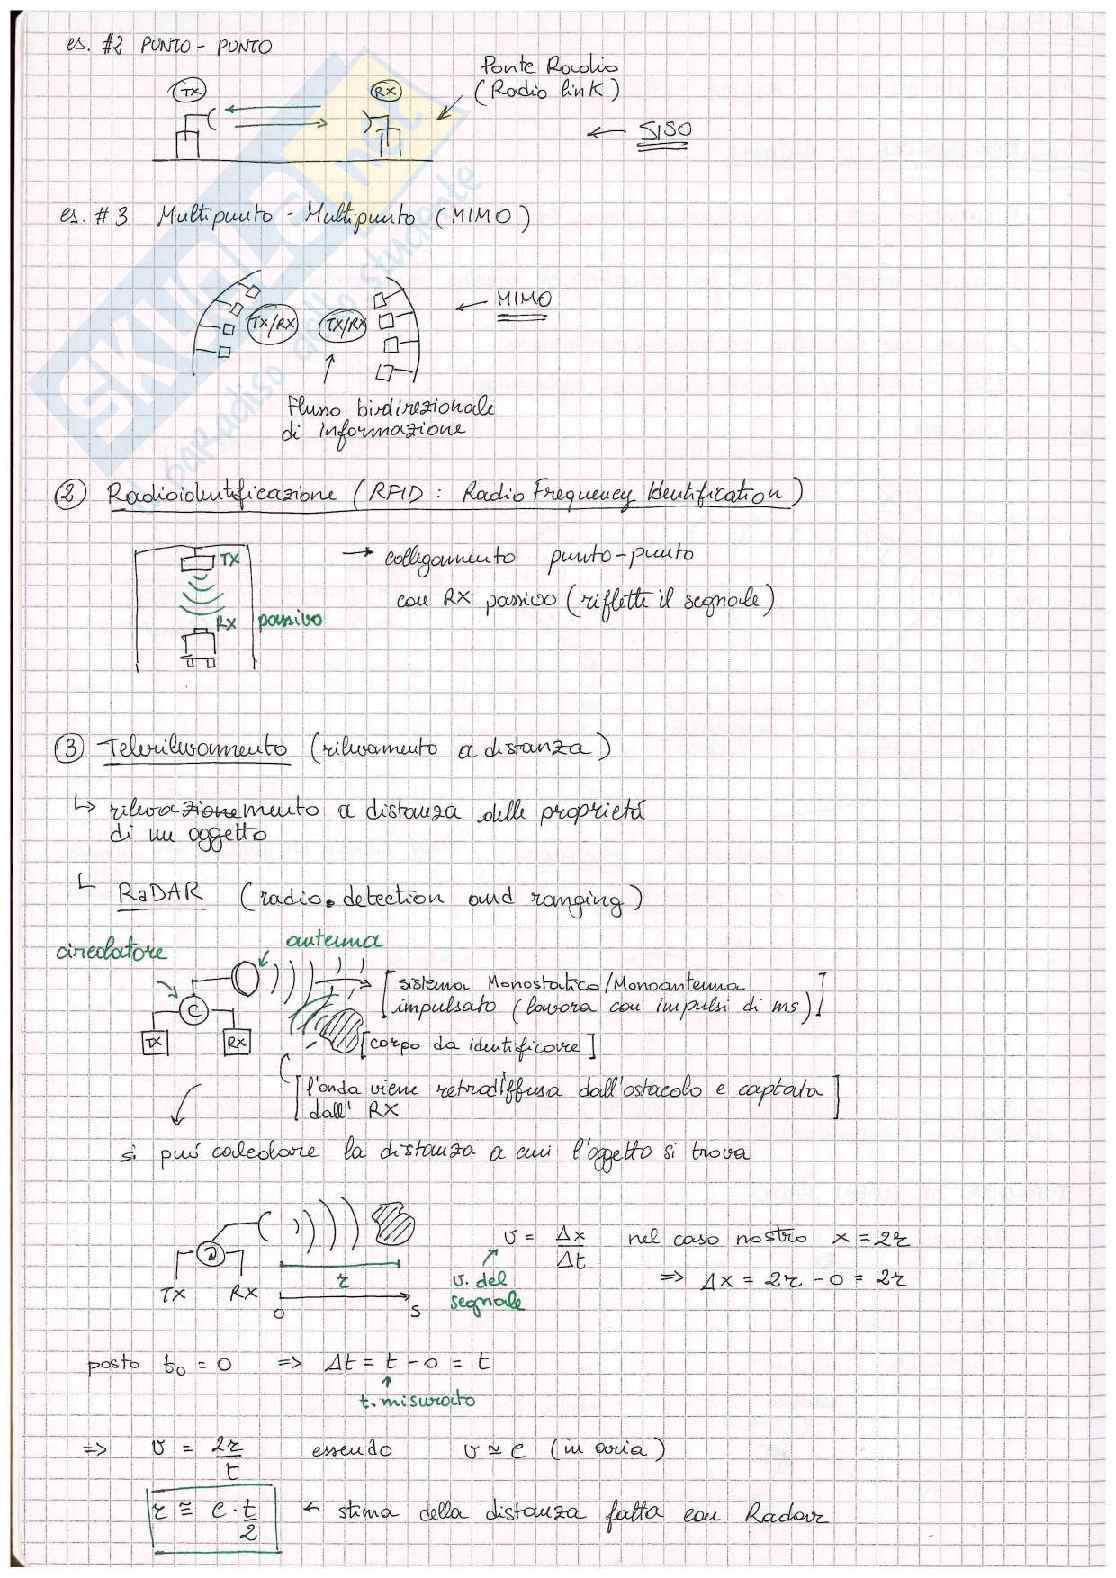 es. #2 PUNTO - PUNTO
TX
RX
Ponte Radio
(Radio link)
← SISO
es. #3 Multipunto - Multipunto (MIMO)
TX/RX
TX/RX
← MIMO
Flusso birdirezionale
di informazione
② Radioidentificazione (RFID : Radio Frequency Identification)
TX
RX
passivo
→ collegamento punto-punto
con RX passivo (riflette il segnale)
③ Telerilevamento (rilevamento a distanza)
↳ rilevazionemento a distanza delle proprietà
di un oggetto
RaDAR (radio detection and ranging)
circolatore
antenna
C
TX
RX
[sistema Monostatico/Monoantenna
impulsato (lavora con impulsi di ms)]
[corpo da identificare]
[l'onda viene retrodiffusa dall'ostacolo e captata
dall' RX]
si può calcolare la distanza a cui l'oggetto si trova
TX RX
r
0
s
v = Δx/Δt nel caso nostro x = 2r
v. del
segnale
=> Δx = 2r - 0 = 2r
posto t₀ = 0 => Δt = t - 0 = t
t. misurato
=> v = 2r/t essendo v ≃ c (in aria)
r ≅ c · t/2 ← stima della distanza fatta con Radar
SKUOLA.net
paradiso dello studente